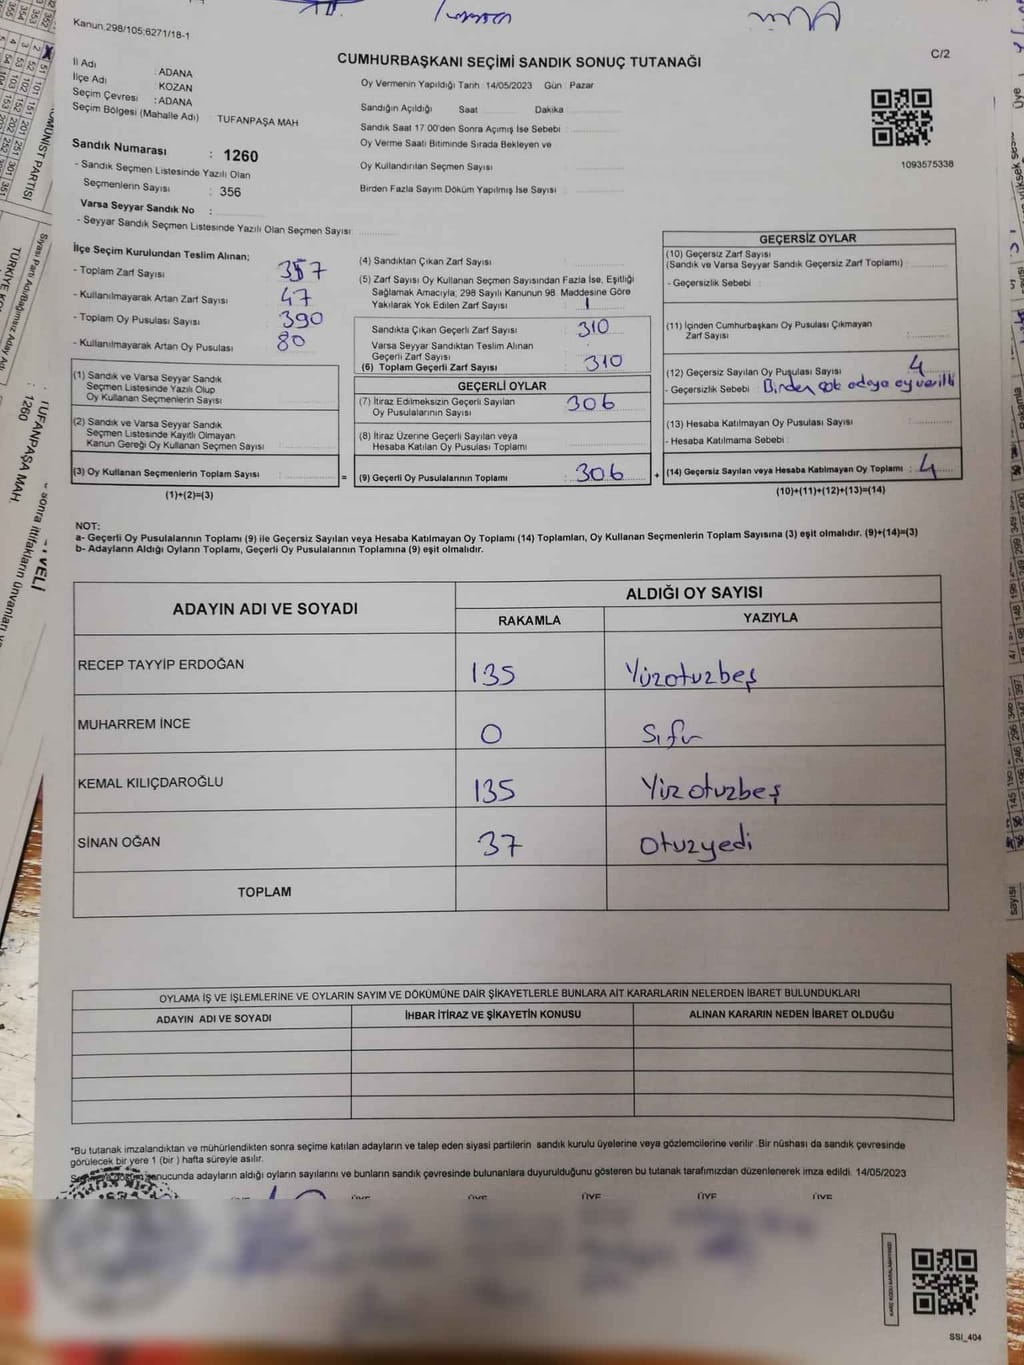 Kanun:298/105;6271/18-1
CUMHURBAŞKANI SEÇİMİ SANDIK SONUÇ TUTANAĞI
C/2
İl Adı : ADANA
İlçe Adı : KOZAN
Seçim Çevresi : ADANA
Seçim Bölgesi (Mahalle Adı) : TUFANPAŞA MAH
Sandık Numarası : 1260
- Sandık Seçmen Listesinde Yazılı Olan
Seçmenlerin Sayısı : 356
Varsa Seyyar Sandık No :
- Seyyar Sandık Seçmen Listesinde Yazılı Olan Seçmen Sayısı:
Oy Vermenin Yapıldığı Tarih : 14/05/2023 Gün : Pazar
Sandığın Açıldığı Saat Dakika
Sandık Saat 17:00'den Sonra Açımış İse Sebebi :
Oy Verme Saati Bitiminde Sırada Bekleyen ve
Oy Kullandırılan Seçmen Sayısı :
Birden Fazla Sayım Döküm Yapılmış İse Sayısı :
1093575338
İlçe Seçim Kurulundan Teslim Alınan;
- Toplam Zarf Sayısı : 357
- Kullanılmayarak Artan Zarf Sayısı : 47
- Toplam Oy Pusulası Sayısı : 390
- Kullanılmayarak Artan Oy Pusulası : 80
(1) Sandık ve Varsa Seyyar Sandık
Seçmen Listesinde Yazılı Olup
Oy Kullanan Seçmenlerin Sayısı :
(2) Sandık ve Varsa Seyyar Sandık
Seçmen Listesinde Kayıtlı Olmayan
Kanun Gereği Oy Kullanan Seçmen Sayısı :
(3) Oy Kullanan Seçmenlerin Toplam Sayısı : =
(1)+(2)=(3)
(4) Sandıktan Çıkan Zarf Sayısı :
(5) Zarf Sayısı Oy Kullanan Seçmen Sayısından Fazla İse, Eşitliği
Sağlamak Amacıyla; 298 Sayılı Kanunun 98. Maddesine Göre
Yakılarak Yok Edilen Zarf Sayısı : 1
Sandıkta Çıkan Geçerli Zarf Sayısı : 310
Varsa Seyyar Sandıktan Teslim Alınan
Geçerli Zarf Sayısı :
(6) Toplam Geçerli Zarf Sayısı : 310
GEÇERLİ OYLAR
(7) İtiraz Edilmeksizin Geçerli Sayılan
Oy Pusulalarının Sayısı : 306
(8) İtiraz Üzerine Geçerli Sayılan veya
Hesaba Katılan Oy Pusulaları Toplamı
(9) Geçerli Oy Pusulalarının Toplamı : 306 +
GEÇERSİZ OYLAR
(10) Geçersiz Zarf Sayısı
(Sandık ve Varsa Seyyar Sandık Geçersiz Zarf Toplamı) :
- Geçersizlik Sebebi :
(11) İçinden Cumhurbaşkanı Oy Pusulası Çıkmayan
Zarf Sayısı :
(12) Geçersiz Sayılan Oy Pusulası Sayısı : 4
- Geçersizlik Sebebi : Birden çok adaya oy verildi
(13) Hesaba Katılmayan Oy Pusulası Sayısı :
- Hesaba Katılmama Sebebi :
(14) Geçersiz Sayılan veya Hesaba Katılmayan Oy Toplamı : 4
(10)+(11)+(12)+(13)=(14)
NOT:
a- Geçerli Oy Pusulalarının Toplamı (9) ile Geçersiz Sayılan veya Hesaba Katılmayan Oy Toplamı (14) Toplamları, Oy Kullanan Seçmenlerin Toplam Sayısına (3) eşit olmalıdır. (9)+(14)=(3)
b- Adayların Aldığı Oyların Toplamı, Geçerli Oy Pusulalarının Toplamına (9) eşit olmalıdır.
ADAYIN ADI VE SOYADI ALDIĞI OY SAYISI
RAKAMLA YAZIYLA
RECEP TAYYİP ERDOĞAN 135 Yüzotuzbeş
MUHARREM İNCE 0 Sıfır
KEMAL KILIÇDAROĞLU 135 Yüzotuzbeş
SİNAN OĞAN 37 Otuzyedi
TOPLAM
OYLAMA İŞ VE İŞLEMLERİNE VE OYLARIN SAYIM VE DÖKÜMÜNE DAİR ŞİKAYETLERLE BUNLARA AİT KARARLARIN NELERDEN İBARET BULUNDUKLARI
ADAYIN ADI VE SOYADI İHBAR İTİRAZ VE ŞİKAYETİN KONUSU ALINAN KARARIN NEDEN İBARET OLDUĞU
*Bu tutanak imzalandıktan ve mühürlendikten sonra seçime katılan adayların ve talep eden siyasi partilerin sandık kurulu üyelerine veya gözlemcilerine verilir. Bir nüshası da sandık çevresinde
görülecek bir yere 1 (bir ) hafta süreyle asılır.
sonucunda adayların aldığı oyların sayılarını ve bunların sandık çevresinde bulunanlara duyurulduğunu gösteren bu tutanak tarafımızdan düzenlenerek imza edildi. 14/05/2023
ÜYE ÜYE ÜYE ÜYE ÜYE
SSI_404
TUFANPAŞA MAH.
1260